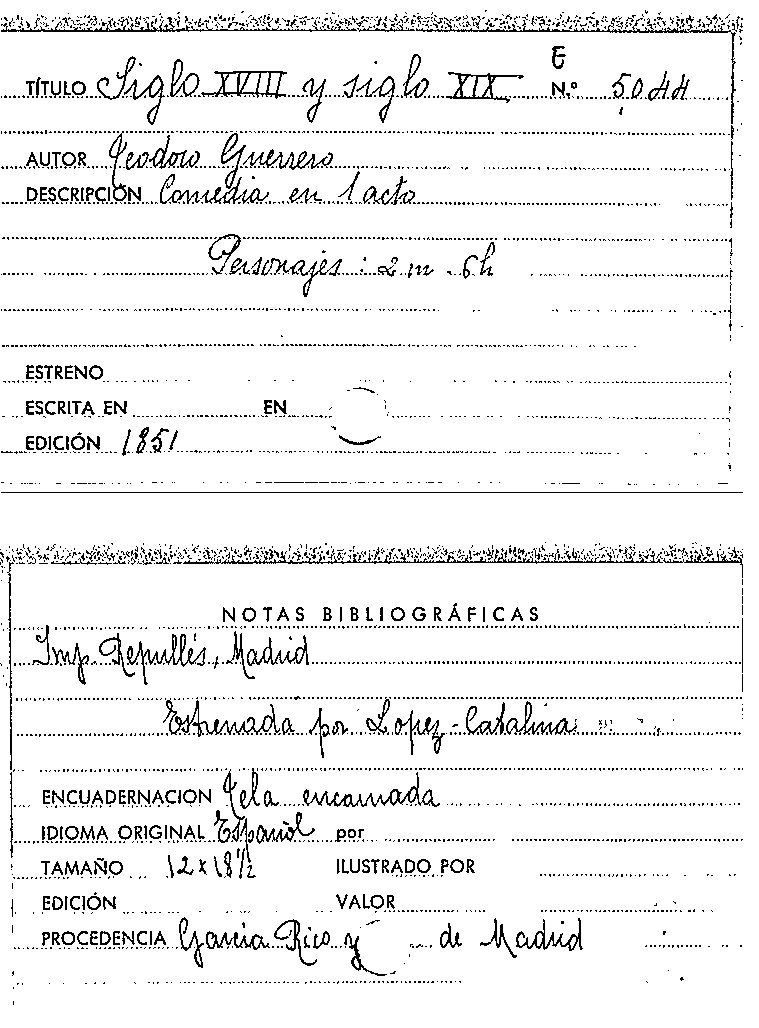 E
TÍTULO Siglo XVIII y siglo XIX N.º 5044
AUTOR Teodoro Guerrero
DESCRIPCIÓN Comedia en 1 acto
Personajes: 2 m - 6 h
ESTRENO
ESCRITA EN EN
EDICIÓN 1851
NOTAS BIBLIOGRÁFICAS
Imp. Repullés, Madrid
Estrenada por Lopez-Catalina
ENCUADERNACION Tela encarnada
IDIOMA ORIGINAL Español por
TAMAÑO 12 x 18 1/2 ILUSTRADO POR
EDICIÓN VALOR
PROCEDENCIA Garcia Rico y de Madrid